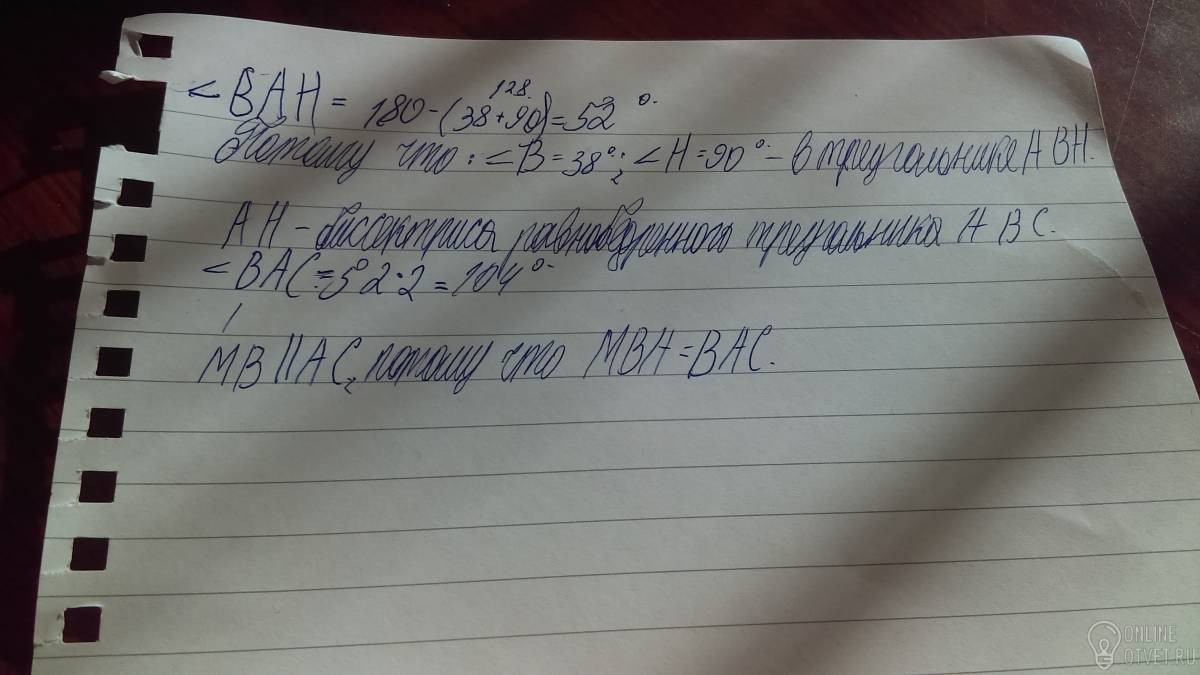 128.
∠BAH = 180-(38+90)=52°.
Потому что: ∠B=38°; ∠H=90° - в треугольнике ABH.
AH - биссектриса равнобедренного треугольника ABC.
∠BAC = 52·2 = 104°.
MB||AC, потому что MBA=BAC.
ONLINE
OTVET.RU